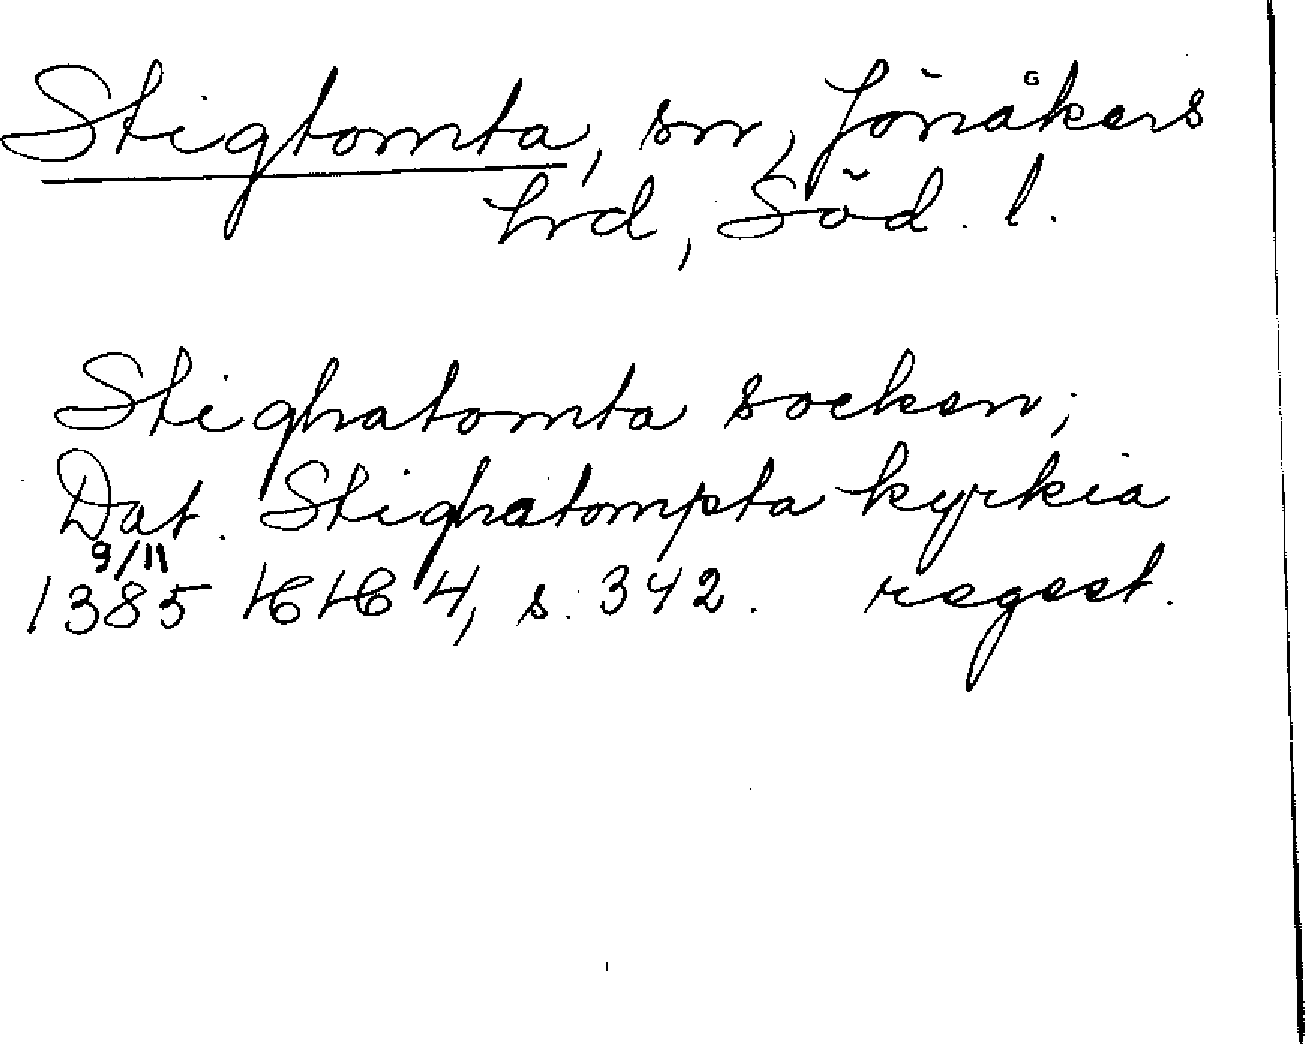 Stigtomta, sn, Jönåkers
hrd, Söd. l.
Stighatomta socken;
Dat. Stighatompta kyrkia
9/11
1385 HH 4, s. 342. regest.